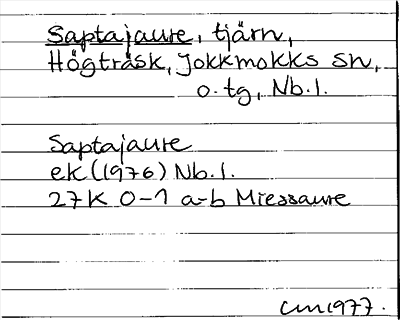 Saptajaure, tjärn,
Högträsk, Jokkmokks sn,
o. tg, Nb. l.
Saptajaure
ek (1976) Nb. l.
27K 0-1 a-b Miessaure
CM 1977.